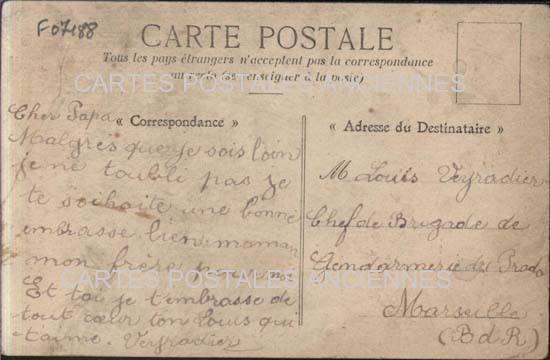 F07188
CARTE POSTALE
Tous les pays étrangers n'acceptent pas la correspondance
au recto (se renseigner à la poste)
CARTES POSTALES ANCIENNES
« Correspondance »
« Adresse du Destinataire »
Cher Papa
Malgrés que je sois loin
je ne toubli pas je
te souhaite une bonne
embrasse bien maman
mon frère pour moi
Et toi je t'embrasse de
tout cœur ton Louis qui
t'aime. Veyradier
M Louis Veyradier
Chef de Brigade de
Gendarmerie du Prado
Marseille
(B d R)
CARTES POSTALES ANCIENNES